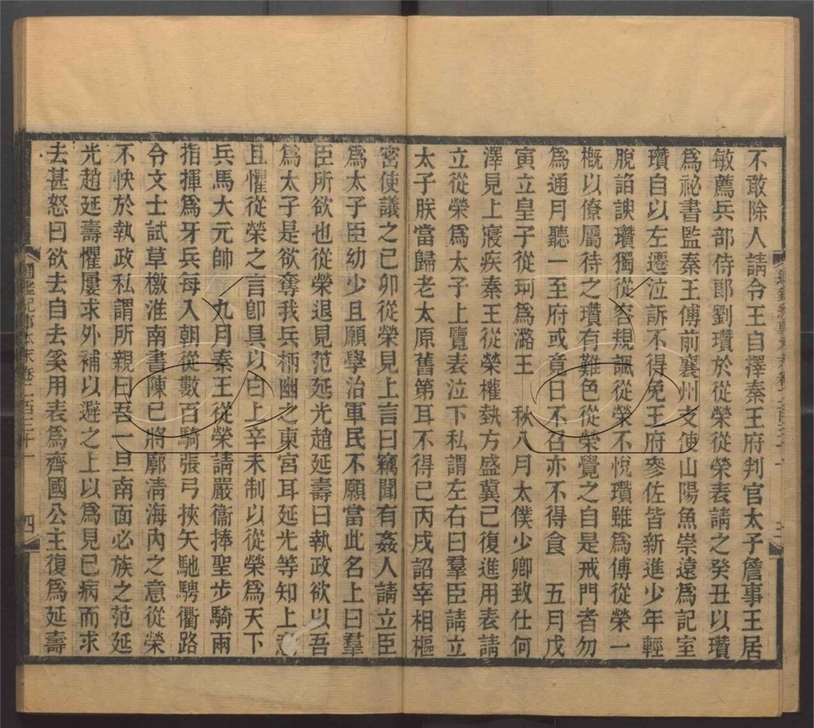 不敢除人請令王自擇秦王府判官太子詹事王居
敏薦兵部侍郎劉瓚於從榮從榮表請之癸丑以瓚
爲祕書監秦王傅前襄州支使山陽魚崇遠爲記室
瓚自以左遷泣訴不得免王府參佐皆新進少年輕
脫諂諛瓚獨從容規諷從榮不悅瓚雖爲傅從榮一
概以僚屬待之瓚有難色從榮覺之自是戒門者勿
爲通月聽一至府或竟日不召亦不得食　五月戊
寅立皇子從珂爲潞王　秋八月太僕少卿致仕何
澤見上寢疾秦王從榮權埶方盛冀己復進用表請
立從榮爲太子上覽表泣下私謂左右曰羣臣請立
太子朕當歸老太原舊第耳不得已丙戌詔宰相樞
密使議之己卯從榮見上言曰竊聞有姦人請立臣
爲太子臣幼少且願學治軍民不願當此名上曰羣
臣所欲也從榮退見范延光趙延壽曰執政欲以吾
爲太子是欲奪我兵柄幽之東宮耳延光等知上意
且懼從榮之言卽具以白上辛未制以從榮爲天下
兵馬大元帥　九月秦王從榮請嚴衞捧聖步騎兩
指揮爲牙兵每入朝從數百騎張弓挾矢馳騁衢路
令文士試草檄淮南書陳已將廓淸海內之意從榮
不怏於執政私謂所親曰吾一旦南面必族之范延
光趙延壽懼屢求外補以避之上以爲見已病而求
去甚怒曰欲去自去奚用表爲齊國公主復爲延壽
通鑑紀事本末卷二百三十一
四